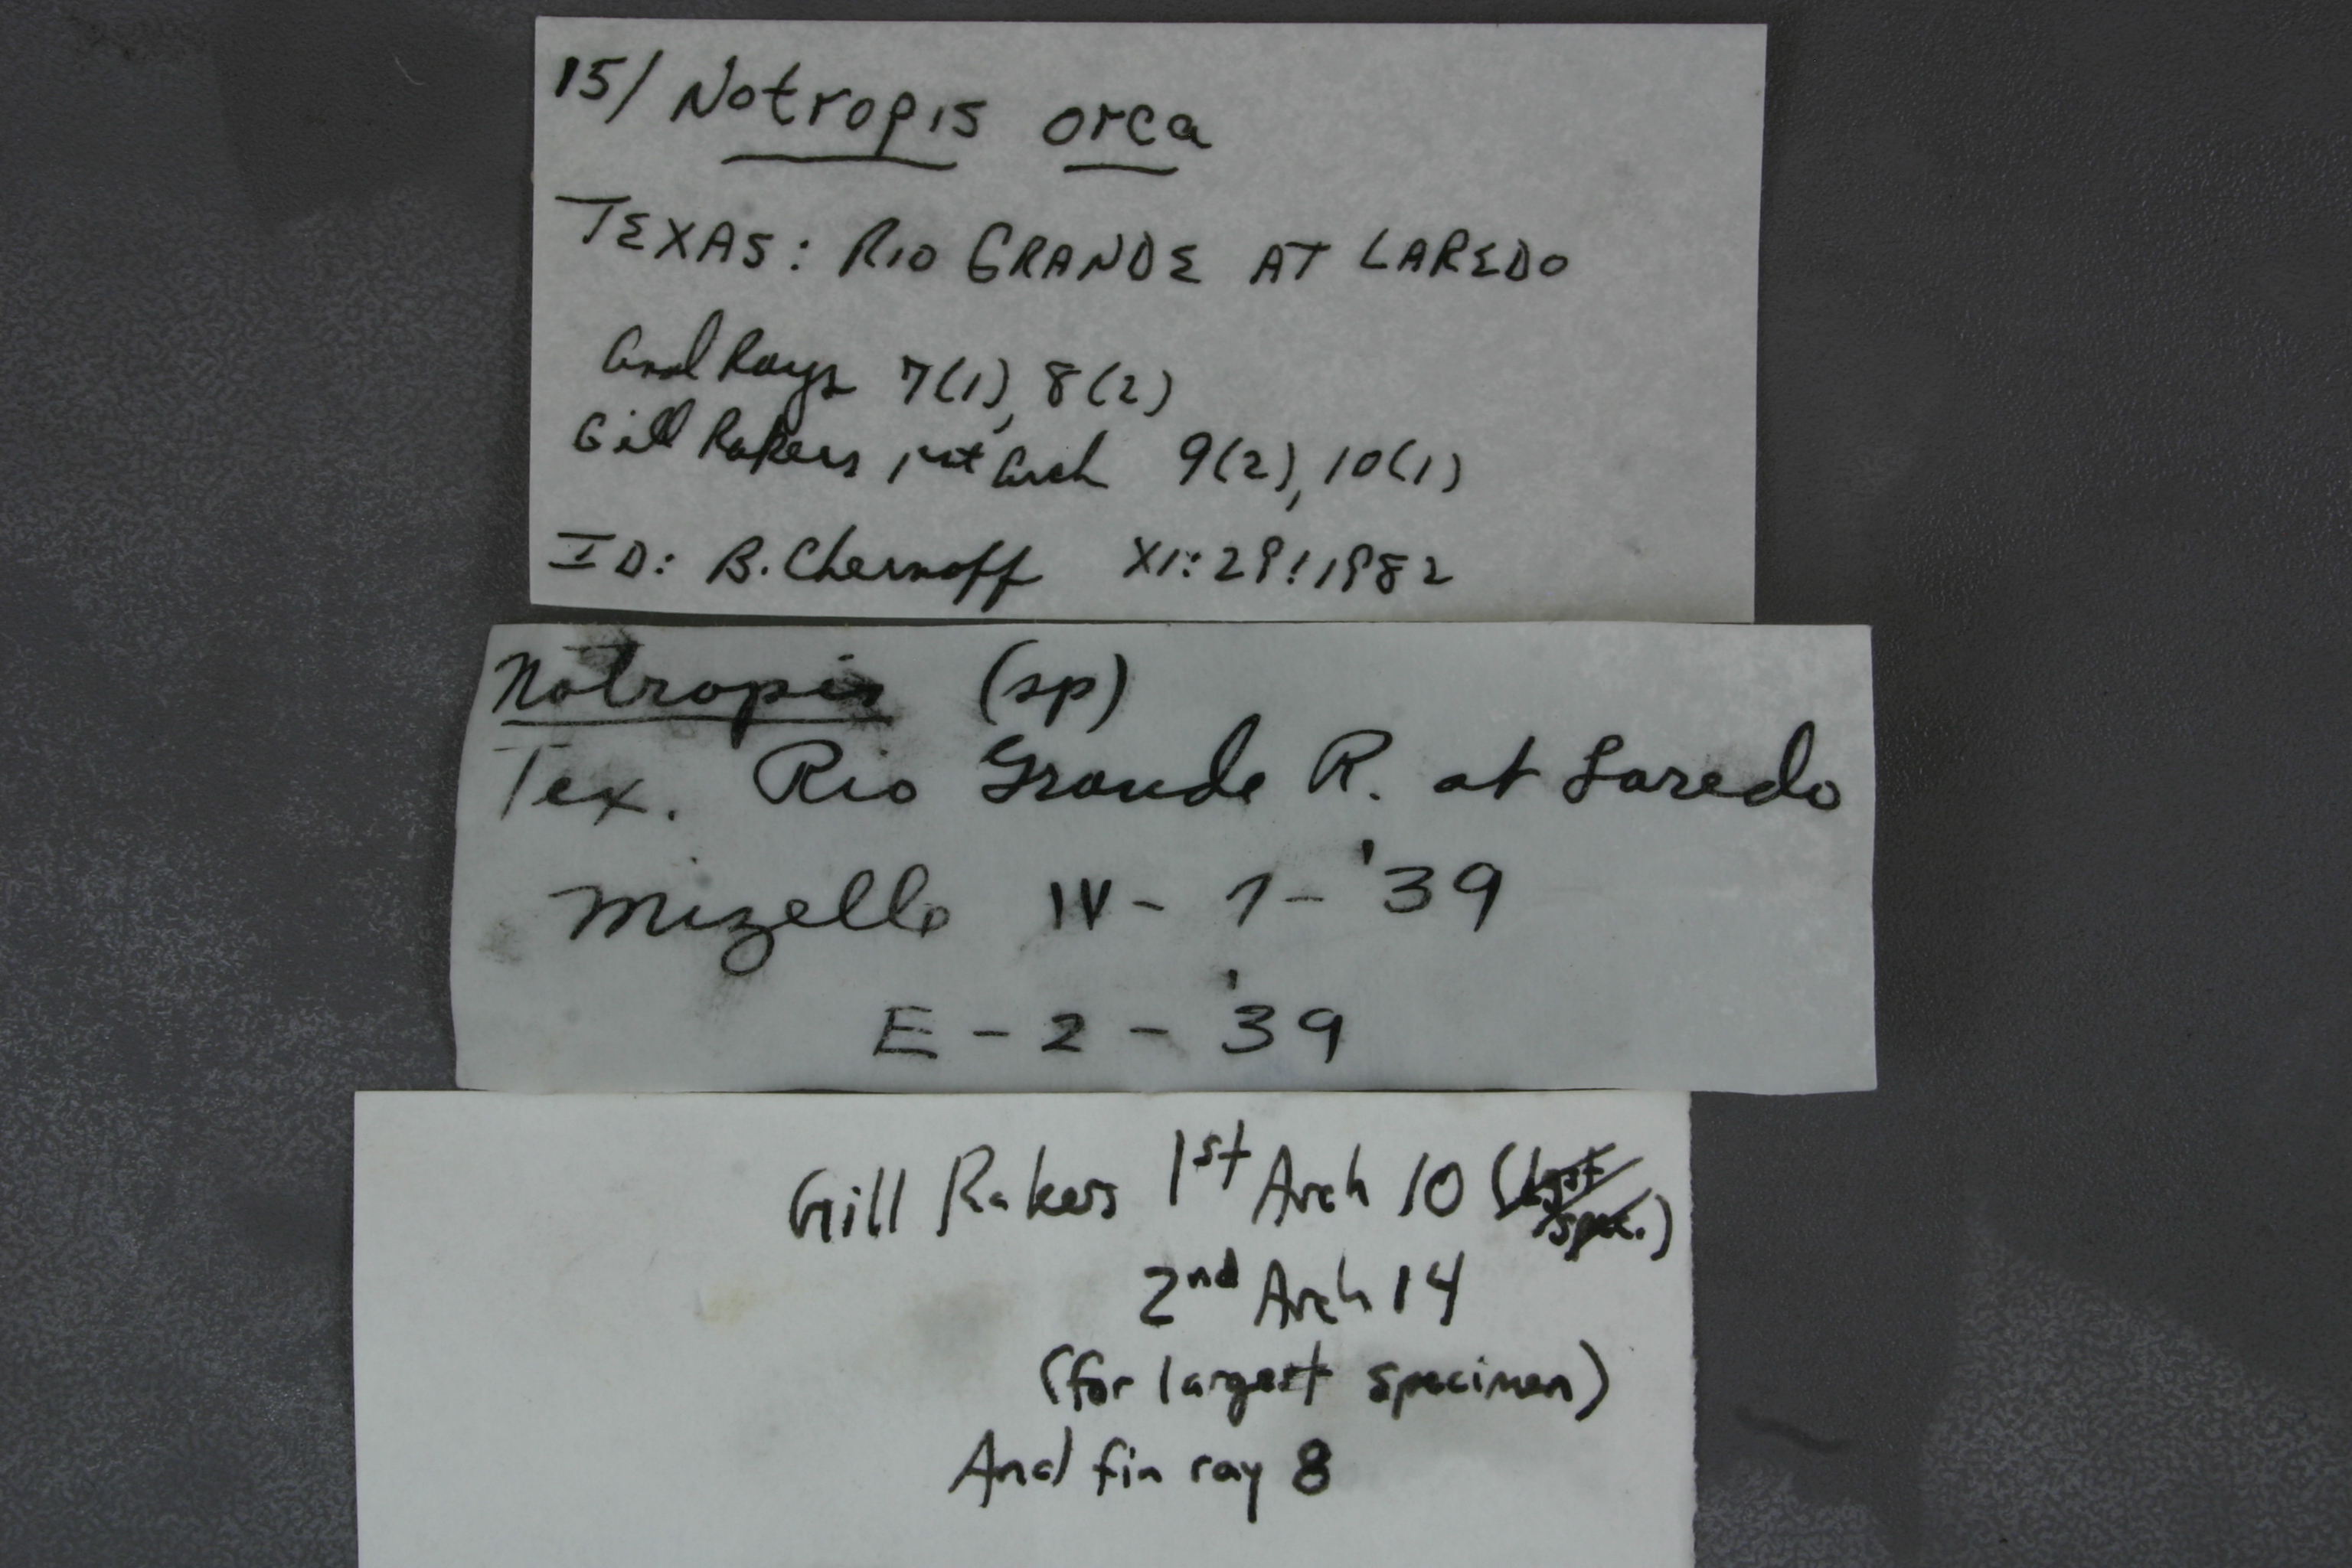 15/ Notropis orca
TEXAS: RIO GRANDE AT LAREDO
Anal Rays 7(1), 8(2)
Gill Rakers 1st Arch 9(2), 10(1)
ID: B. Chernoff XI:29:1982
Notropis (sp)
Tex. Rio Grande R. at Laredo
Mizelle IV-7-'39
E-2-'39
Gill Rakers 1st Arch 10 (
spec.)
2nd Arch 14
(for largest specimen)
Anal fin ray 8